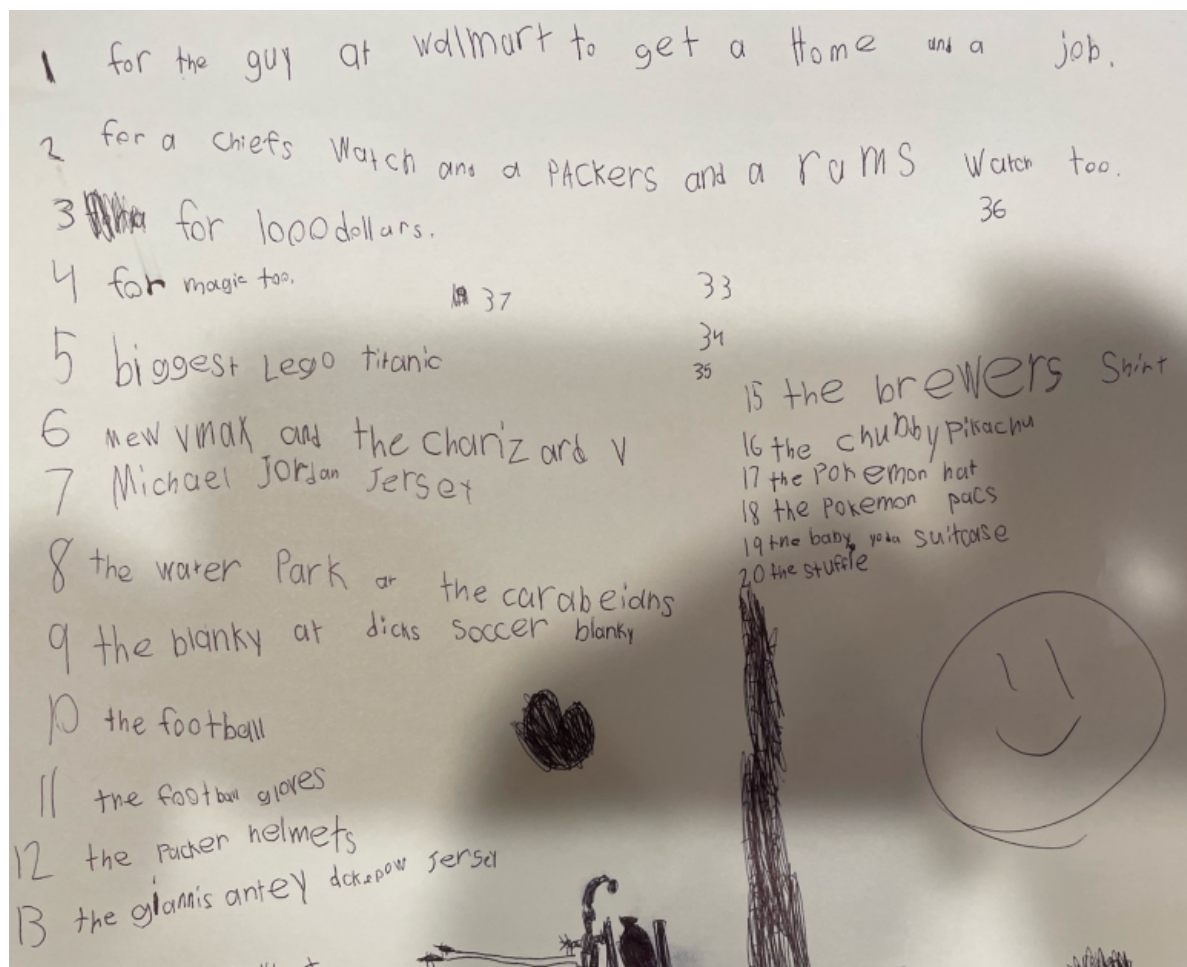 1 for the guy at walmart to get a Home and a job.
2 for a chiefs watch and a PACkers and a rams watch too.
3 for 1000 dollars.
36
4 for magic too.
37
33
34
35
5 biggest Lego titanic
6 mew vmax and the charizard V
7 Michael Jordan Jersey
8 the water Park at the carabeians
9 the blanky at dicks soccer blanky
10 the football
11 the football gloves
12 the Packer helmets
13 the giannis antey dckepow Jersey
15 the brewers Shirt
16 the chubby pikachu
17 the Pokemon hat
18 the Pokemon pacs
19 the baby yoda suitcase
20 the stuffle